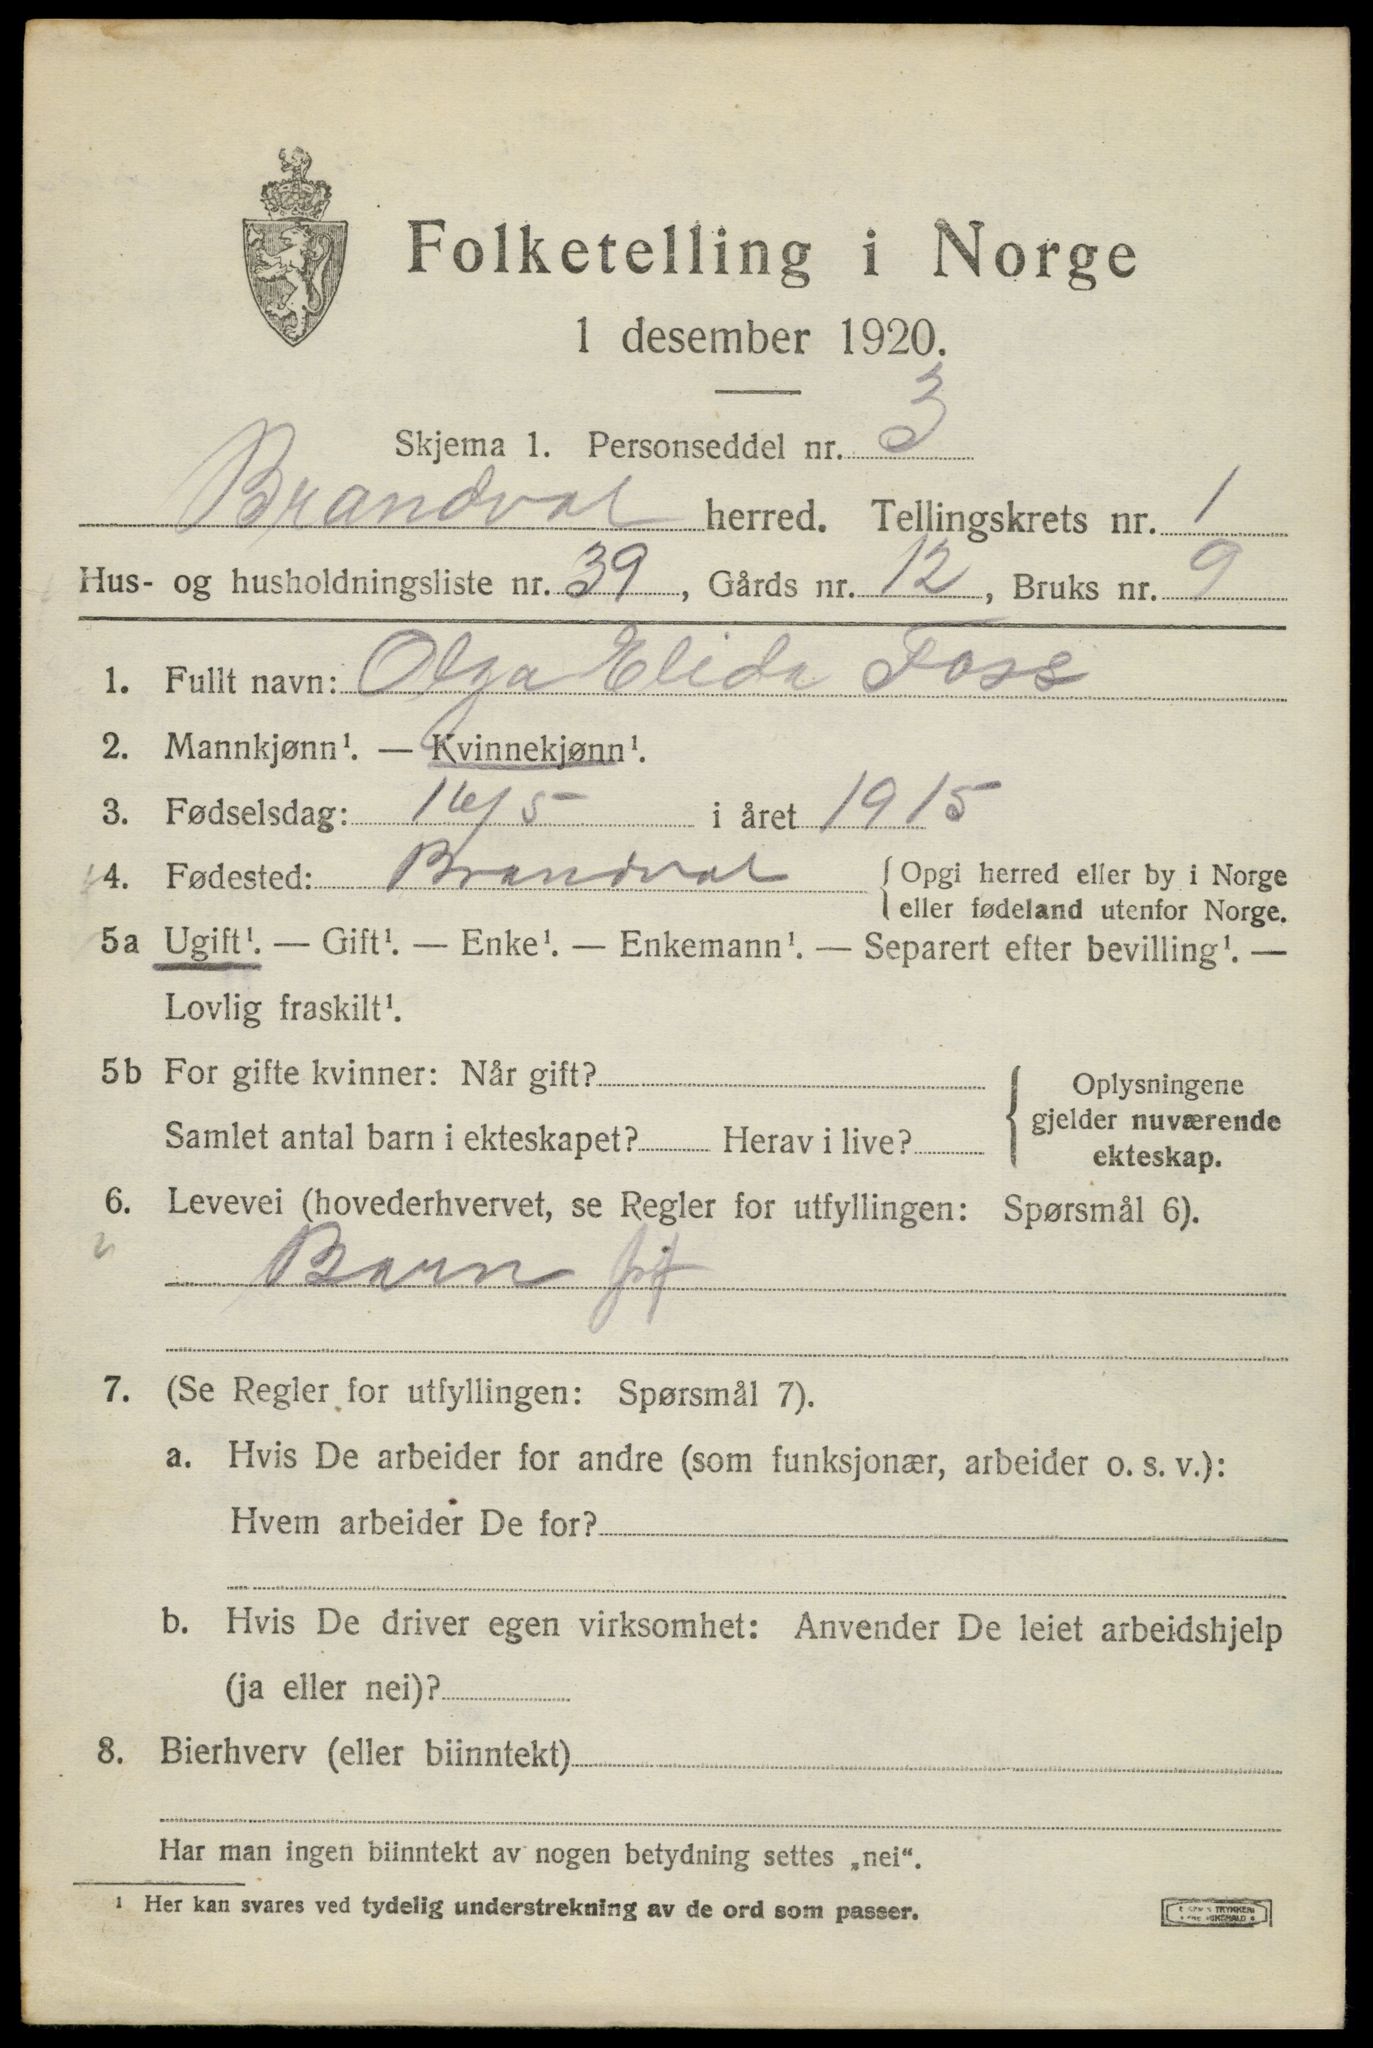 Folketelling i Norge
1 desember 1920.
Skjema 1. Personseddel nr. 3
Brandval herred. Tellingskrets nr. 1
Hus- og husholdningsliste nr. 39, Gårds nr. 12, Bruks nr. 9
1. Fullt navn: Olga Elida Foss
2. Mannkjønn¹. — Kvinnekjønn¹.
3. Fødselsdag: 16/5 i året 1915
4. Fødested: Brandval { Opgi herred eller by i Norge
eller fødeland utenfor Norge.
5a Ugift¹. — Gift¹. — Enke¹. — Enkemann¹. — Separert efter bevilling¹. —
Lovlig fraskilt¹.
5b For gifte kvinner: Når gift?
Samlet antal barn i ekteskapet? Herav i live?
{ Oplysningene
gjelder nuværende
ekteskap.
6. Levevei (hovederhvervet, se Regler for utfyllingen: Spørsmål 6).
Barn
7. (Se Regler for utfyllingen: Spørsmål 7).
a. Hvis De arbeider for andre (som funksjonær, arbeider o. s. v.):
Hvem arbeider De for?
b. Hvis De driver egen virksomhet: Anvender De leiet arbeidshjelp
(ja eller nei)?
8. Bierhverv (eller biinntekt)
Har man ingen biinntekt av nogen betydning settes „nei“.
¹ Her kan svares ved tydelig understrekning av de ord som passer.